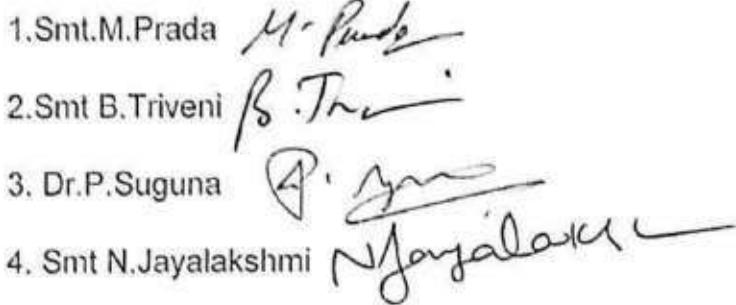 1.Smt.M.Prada M. Prada
2.Smt B.Triveni B.
3. Dr.P.Suguna P.
4. Smt N.Jayalakshmi NJayalakshmi